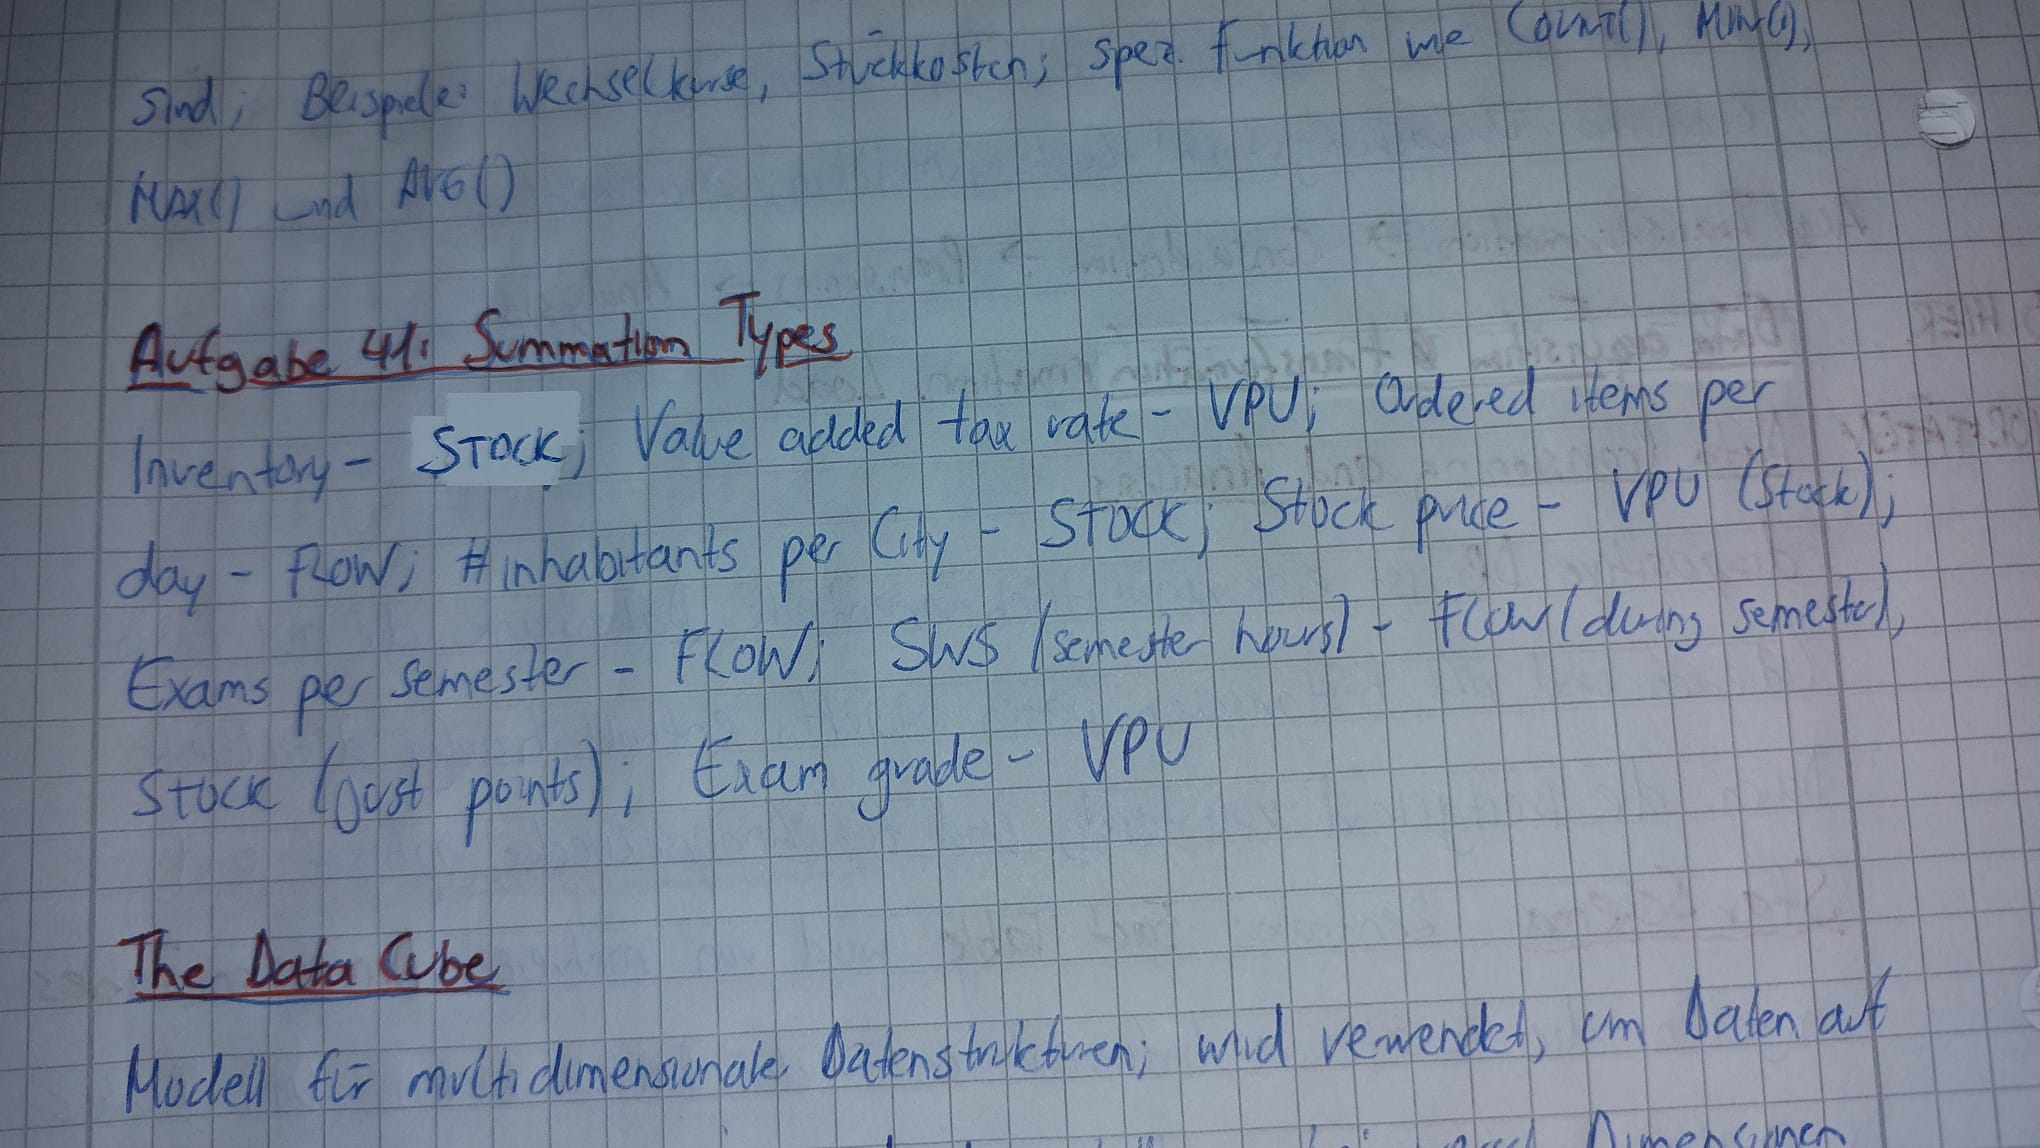 sind; Beispiele: Wechselkurse, Stückkosten; spez. Funktion wie Count(), Min(),
MAX() und AVG()
Aufgabe 41: Summation Types
Inventory - STOCK; Value added tax rate - VPU; Ordered items per
day - FLOW; # inhabitants per City - STOCK; Stock price - VPU (Stock);
Exams per semester - FLOW; SWS (semester hours) - FLOW (during semester),
STOCK (just points); Exam grade - VPU
The Data Cube
Modell für multidimensionale Datenstrukturen; wird verwendet, um Daten auf
Dimensionen